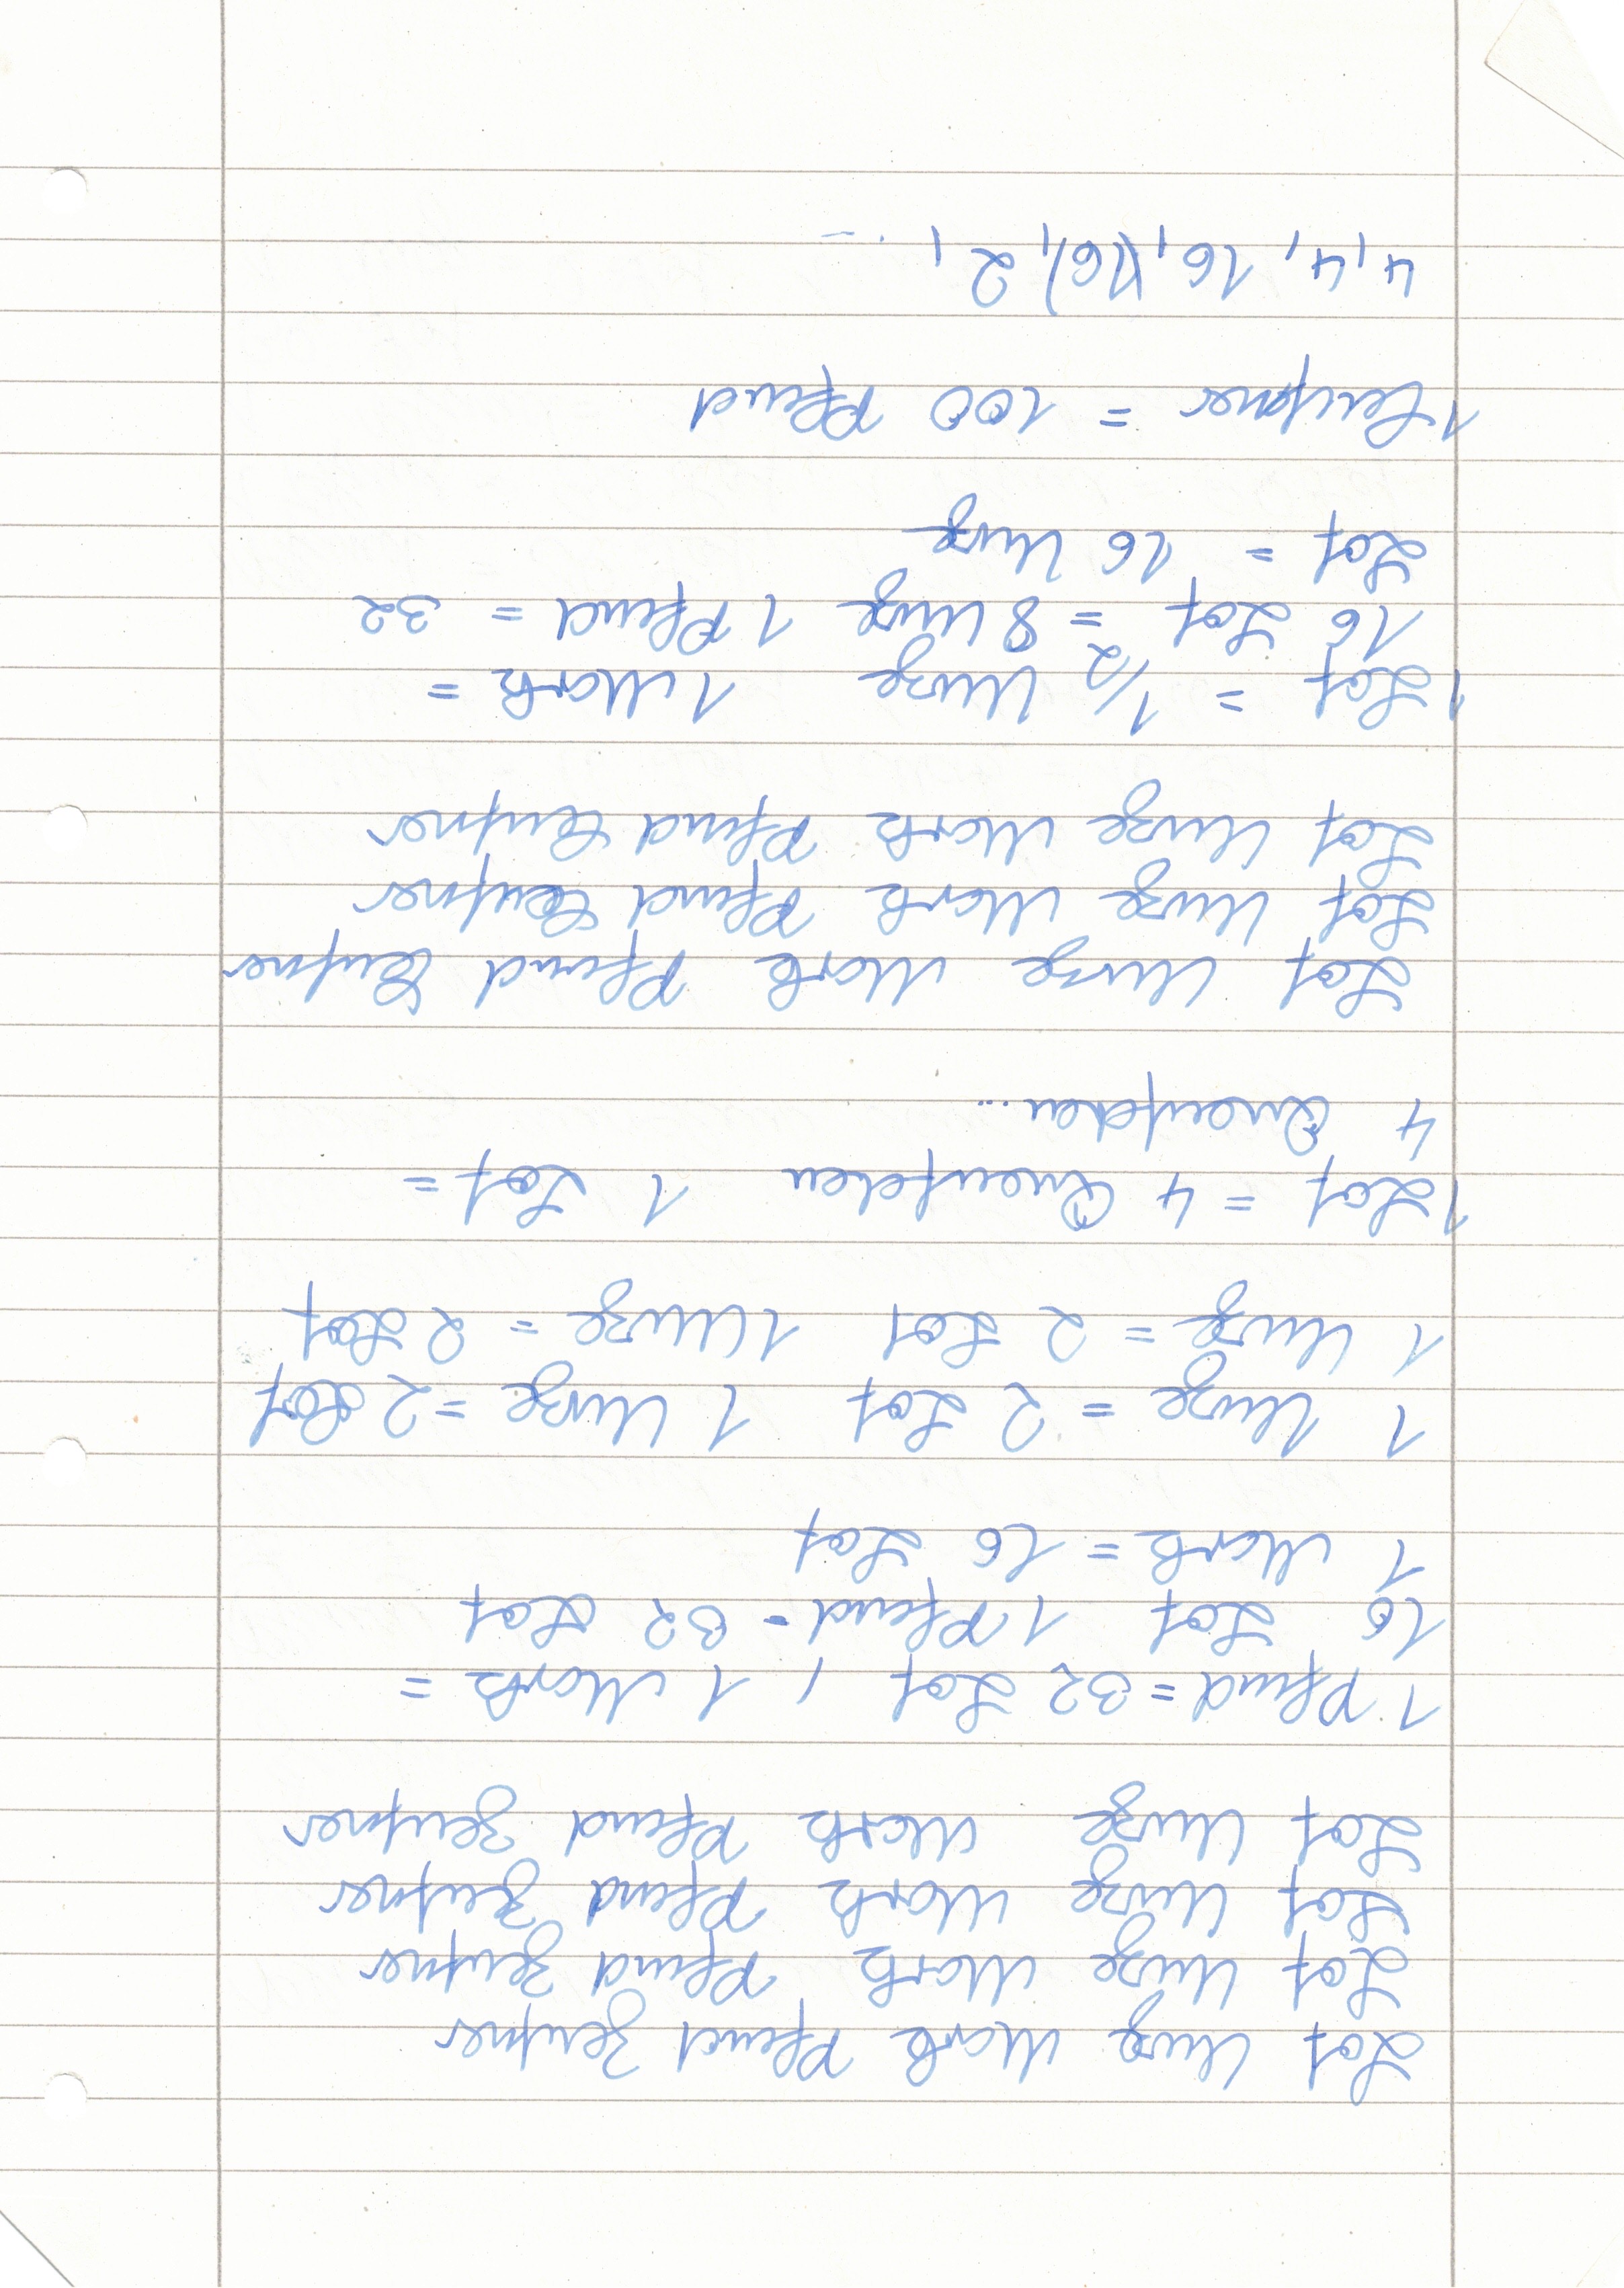 Lot Unze Mark Pfund Zentner
Lot Unze Mark Pfund Zentner
Lot Unze Mark Pfund Zentner
Lot Unze Mark Pfund Zentner
1 Pfund = 32 Lot, 1 Mark =
16 Lot 1 Pfund = 32 Lot
1 Mark = 16 Lot
1 Unze = 2 Lot 1 Unze = 2 Lot
1 Unze = 2 Lot 1 Unze = 2 Lot
1 Lot = 4 Quentchen 1 Lot =
4 Quentchen ...
Lot Unze Mark Pfund Centner
Lot Unze Mark Pfund Centner
Lot Unze Mark Pfund Centner
1 Lot = 1/2 Unze 1 Mark =
16 Lot = 8 Unze 1 Pfund = 32
Lot = 16 Unze
1 Centner = 100 Pfund
4, 4, 16, (16), 2, ...